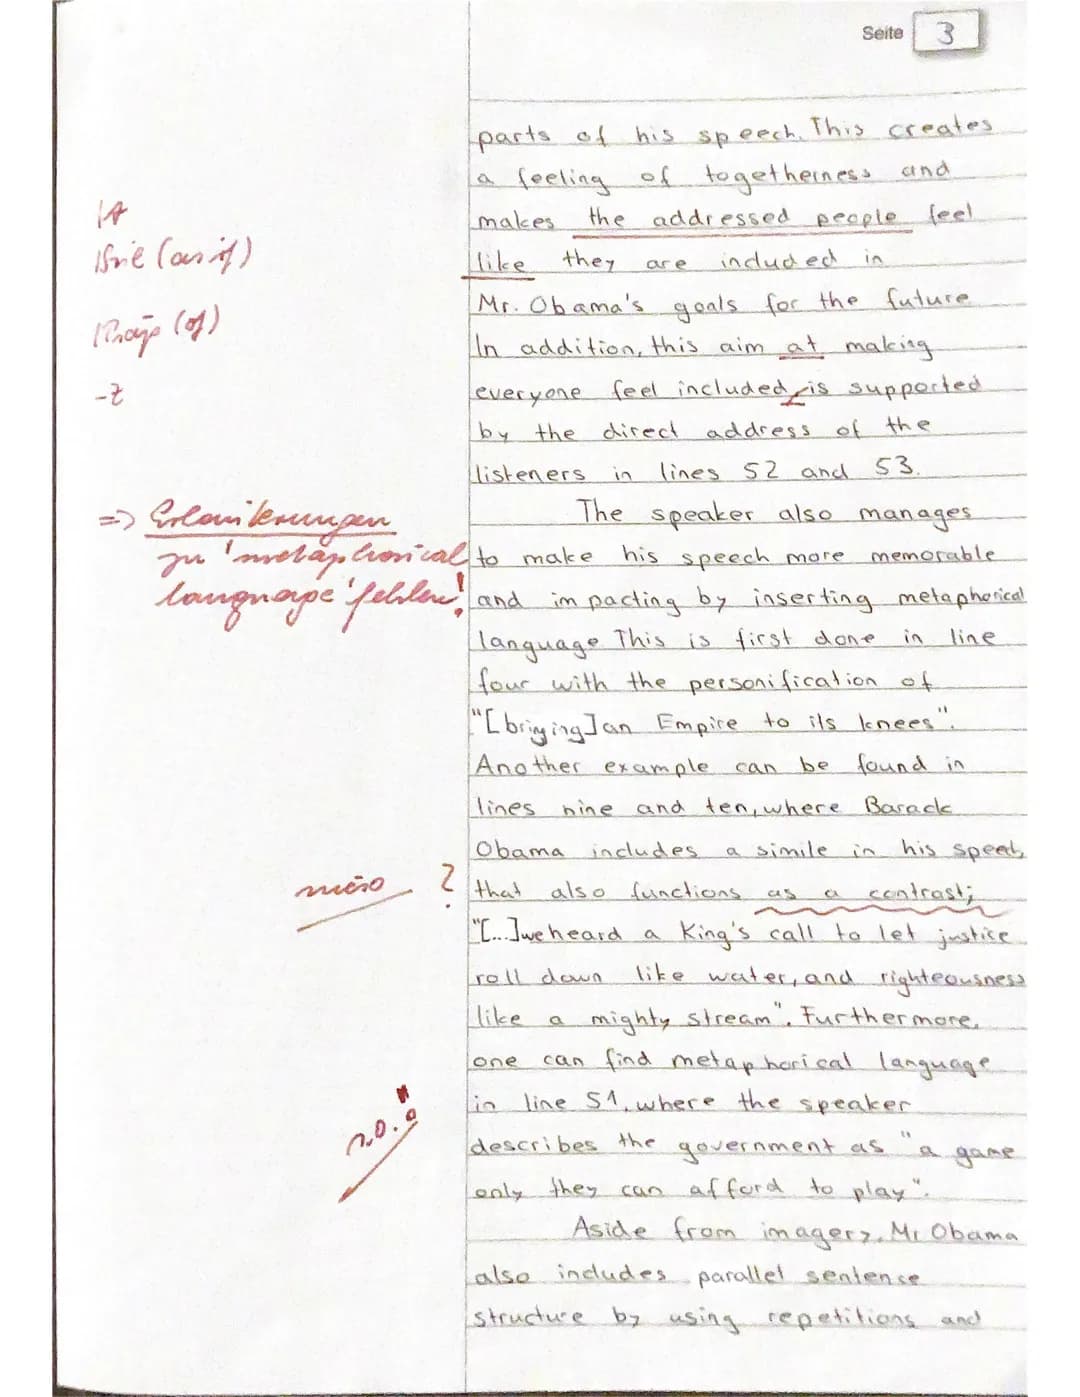 Seite 3
parts of his speech. This creates
a feeling of togetherness and
makes the addressed people feel
like they are included in
Mr. Obama's goals for the future
In addition, this aim at making
everyone feel included is supported
by the direct address of the
listeners in lines 52 and 53.
The speaker also manages
to make his speech more memorable
and impacting by inserting metaphorical
language. This is first done in line
four with the personification of
"[bringing] an Empire to its knees".
Another example can be found in
lines nine and ten, where Barack
Obama includes a simile in his speech,
that also functions as a contrast;
"[...] we heard a King's call to let justice
roll down like water, and righteousness
like a mighty stream". Furthermore,
one can find metaphorical language
in line 51, where the speaker
describes the government as "a game
only they can afford to play".
Aside from imagery, Mr Obama
also includes parallel sentence
structure by using repetitions and
|A
(as if)
(of)
-Z
=> Erläuterungen
zu 'metaphorical
language' fehlen!
wieso ?
s.o.!